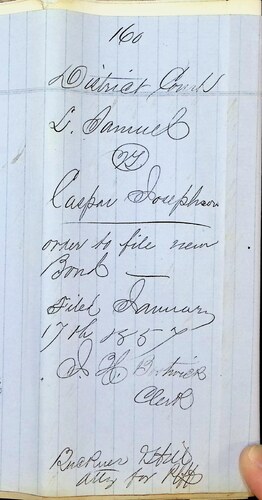 160
District Court
L. Samuel
vs
Caspar Josephson
order to file new
Bond —
Filed January
17th 1857
Clerk
atty for Plff